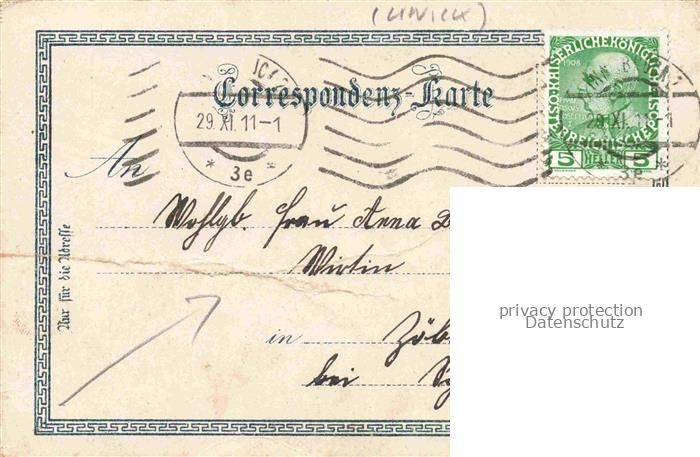 (UNICK)
Correspondenz-Karte
29.XI.11-1
* 3e *
KAISERLICHE KÖNIGLICHE ÖSTERREICHISCHE POST
1908
5 HELLER 5
29.XI.11-1
3e *
An
Wohlgb. Frau Anna
Wirtin
in Zöb
bei
Nur für die Adresse
privacy protection
Datenschutz